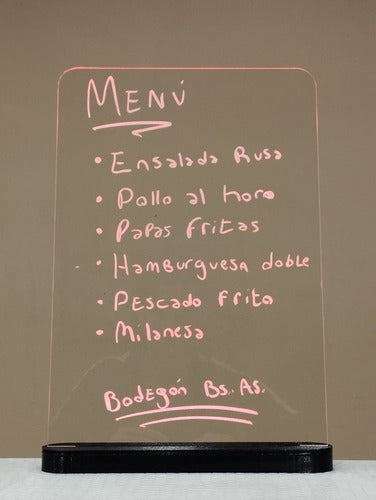 MENÚ
• Ensalada Rusa
• Pollo al horo
• Papas fritas
• Hamburguesa doble
• Pescado frito
• Milanesa
Bodegón Bs. As.